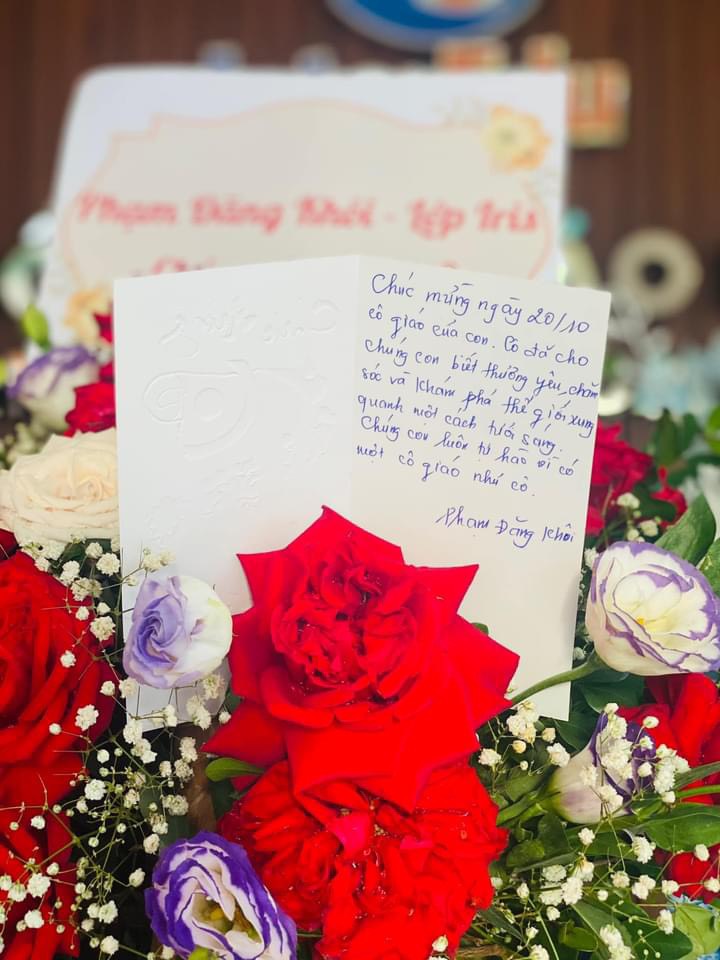 Phạm Đăng Khôi - Lớp Iris
Chúc mừng ngày 20/10
cô giáo của con. Cô đã cho
chúng con biết thương yêu, chăm
sóc và khám phá thế giới xung
quanh một cách tươi sáng.
Chúng con luôn tự hào vì có
một cô giáo như cô.
Phạm Đăng Khôi